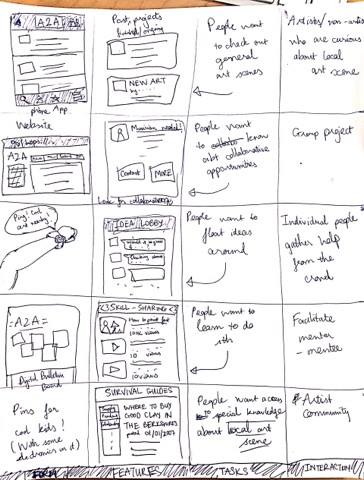 A2A
phone App
Past, projects
NEW ART
by
People want
to check out
general
art scenes
Artists/non-artists
who are curious
about local
art scene
Website
A2A
needed!
Contact
MORE
Look for collaborators
People want
to know
abt collaborative
opportunities
Group project
Ping! Cool
art nearby!
IDEA LOBBY
People want to
float ideas
around
Individual people
gather help
from the
crowd
=A2A=
Digital Bulletin
Board
<3 SKILL-SHARING <3
10 views
People want to
learn to do
sth
Facilitate
mentor
- mentee
Pins for
cool kids!
(With some
electronics in it)
SURVIVAL GUIDES
WHERE TO BUY
GOOD CLAY IN
THE BERKSHIRES
People want access
to special knowledge
about local art
scene
# Artist
Community
FORM
FEATURES
TASKS
INTERACTION